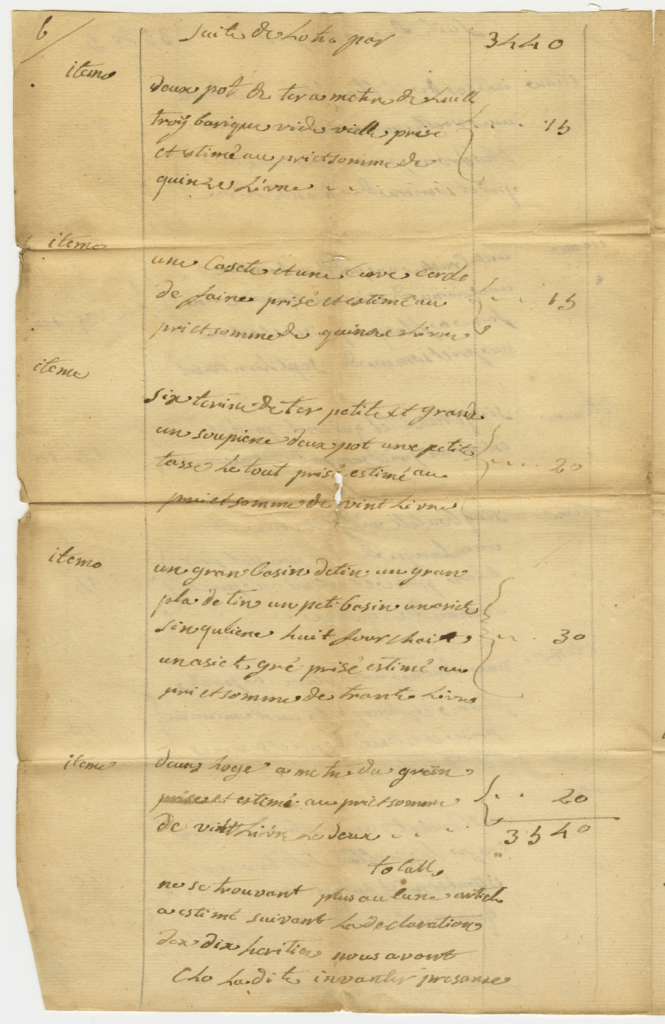 6
suite de lotre par 3440
itemo
deux pot de ter a metre de luille
troij barique vide vielle prisé
et estimé au priet somme de 15
quinze livre
itemo
une casete et une cuve cercle
de faire prisé et estimé au 15
priet somme de quinze livre
iteme
six terine de ter petite et grande
un soupiere deux pot une petite
tasse le tout prisé estimé au 20
priet somme de vint livre
itemo
un gran basin detin un gran
pla de tin un peti basin un
sinq huit fourchet 30
un asiete gré prisé estimé au
priet somme de trante livre
iteme
deux a metre du grain
prisé et estimé au priet somme 20
de vint livre le deux 3540
totalle
ne se trouvant plus aucune article
a estimé suivant la declaration
des dix heritier nous avons
clo la dite inventer presance